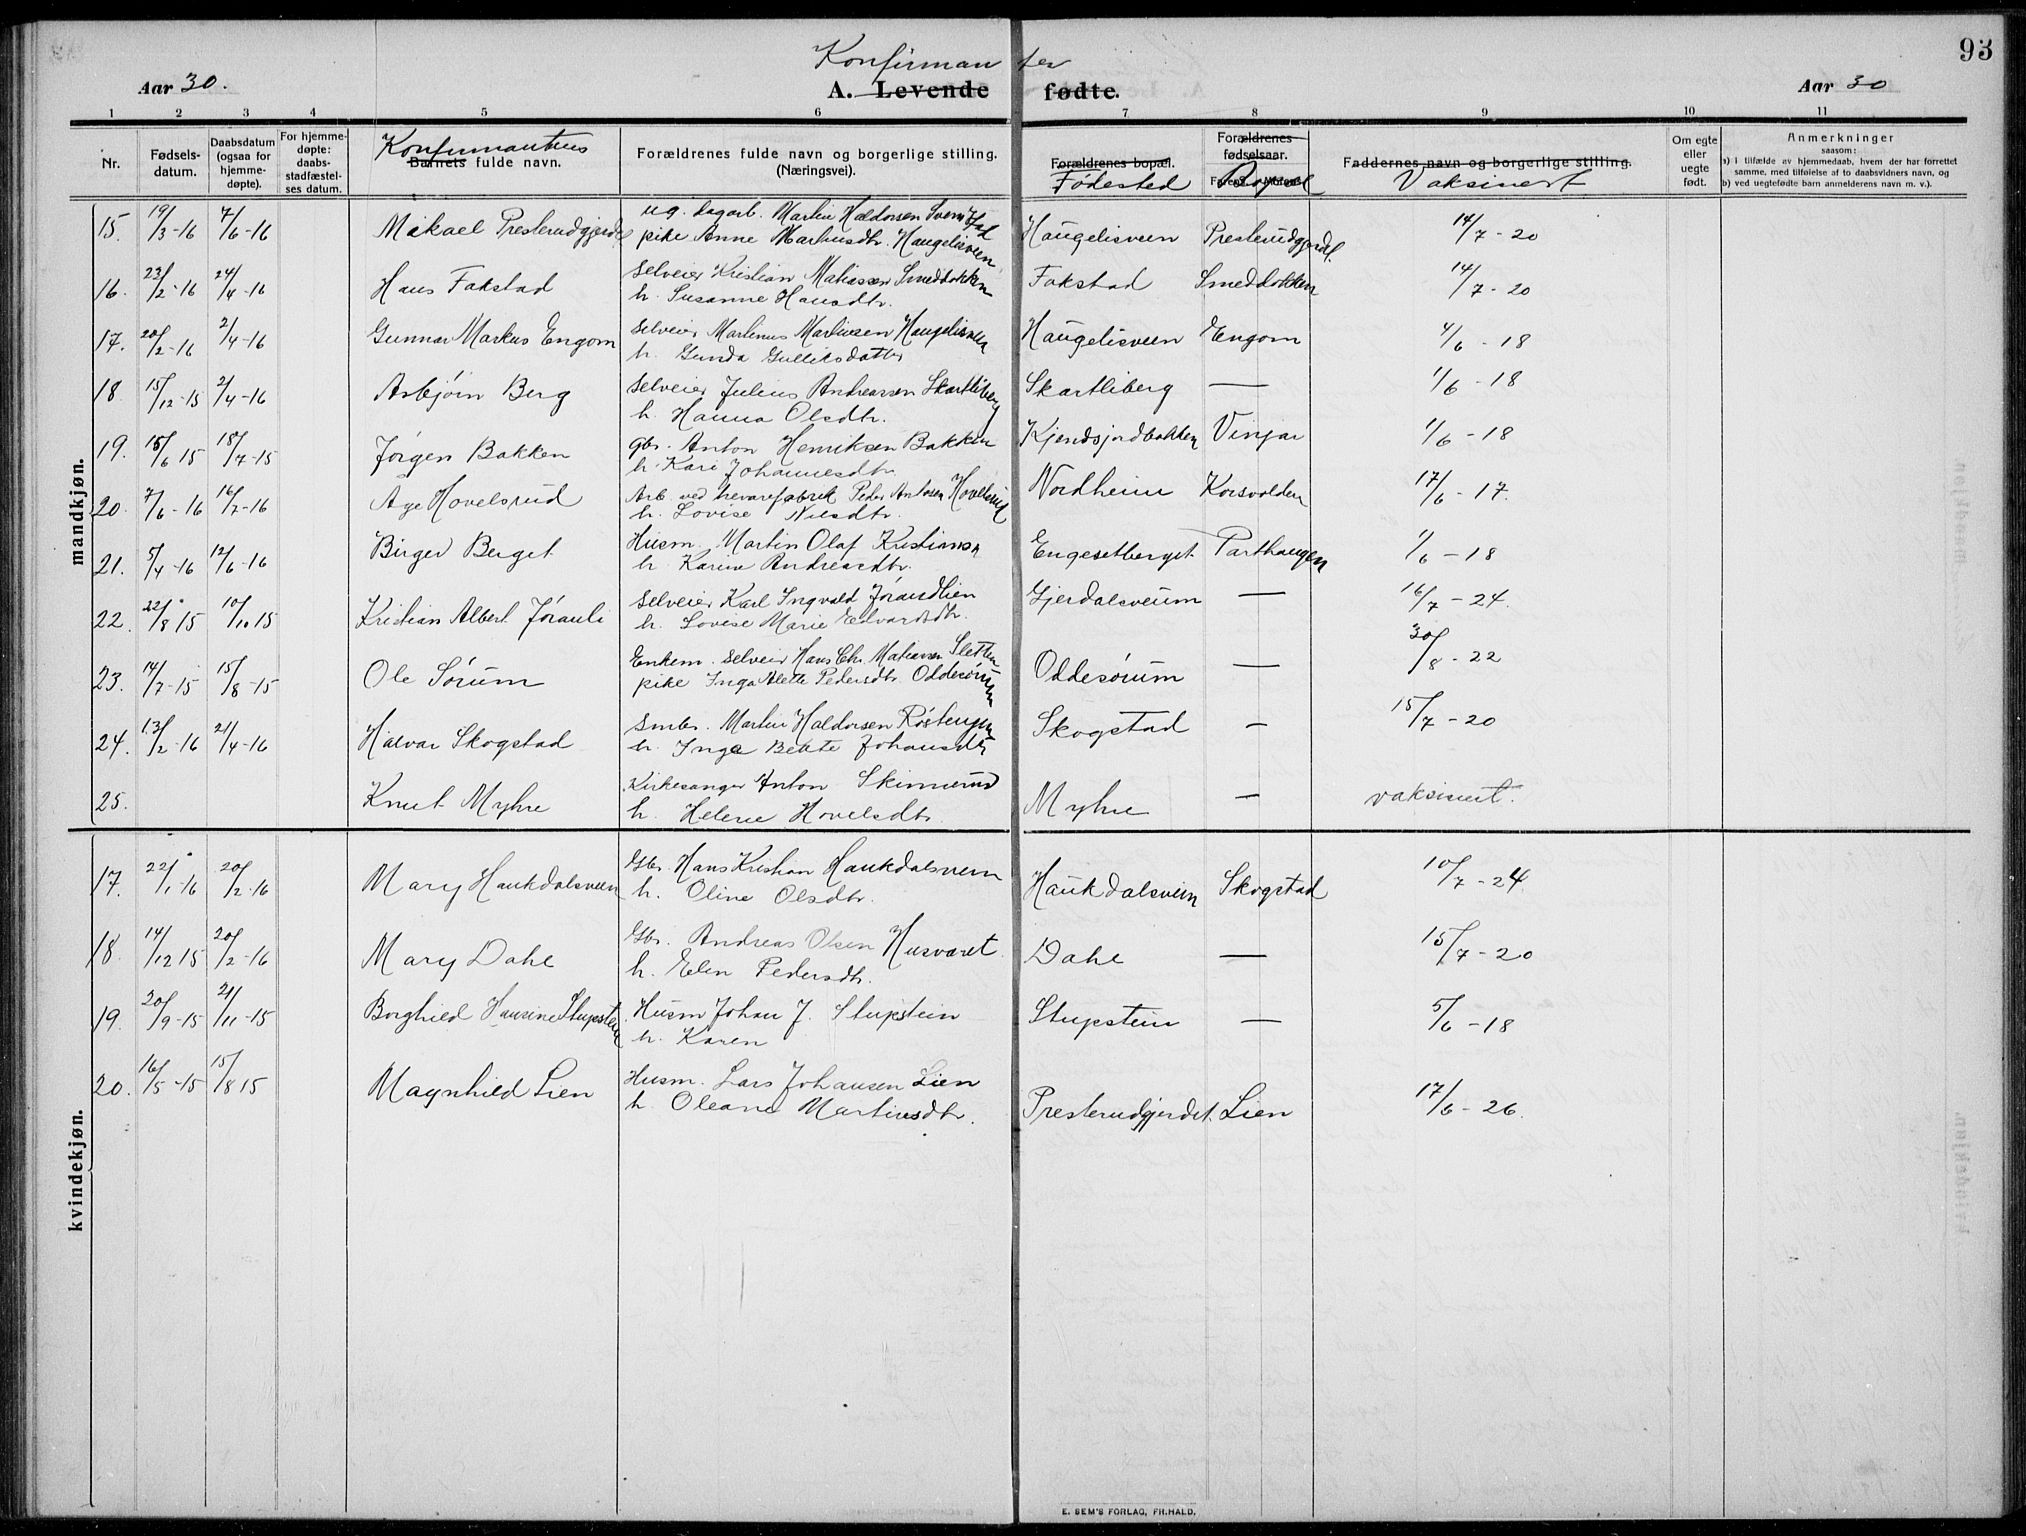 93
Konfirmanter
Aar 30.
A. Levende fødte.
Aar 30
1 2 3 4 5 6 7 8 9 10 11
Nr.
Fødsels-
datum.
Daabsdatum
(ogsaa for
hjemme-
døpte).
For hjemme-
døpte:
daabs-
stadfæstel-
ses datum.
Konfirmantens
Barnets fulde navn.
Forældrenes fulde navn og borgerlige stilling.
(Næringsvei).
Forældrenes bopæl.
Fødested
Forældrenes
fødselsaar.
Bopæl
Faddernes navn og borgerlige stilling.
Vaksinert
Om egte
eller
uegte
født.
Anmerkninger
saasom:
a) i tilfælde av hjemmedaab, hvem der har forrettet
samme, med tilføielse af to daabsvidners navn, og
b) ved uegtefødte barn anmelderens navn m. v.).
mandkjøn.
15. 19/3-16 7/6-16 Mikael Presterudgjerdet ug. dagarb. Martin Haldorsen Svenstad Haugelisveen Presterudgjerdet. 14/7-20
pike Anne Marhusdtr. Haugelisveen
16. 23/2-16 24/4-16 Hans Fakstad Selveier Kristian Matiassen Smedbakken Fakstad Smedbakken 14/7-20
h. Susanne Hansdtr.
17. 20/2-16 2/4-16 Gunnar Markus Engom Selveier Martinus Martinsen Haugelisveen Haugelisveen Engom 4/6-18
h. Gunda Gulleksdatter
18. 15/12-15 2/4-16 Asbjørn Berg Selveier Julius Andreassen Skartliberg Skartliberg — 1/6-18
h. Hanna Olsdtr.
19. 15/6 15 18/7-15 Jørgen Bakken gbr. Anton Henriksen Bakken Kjendsjordbakken Vinjar 1/6-18
h. Kari Johannesdtr.
20. 7/6-16 16/7-16 Age Hovelsrud Arb. ved trevarefabrik Peder Antonsen Hovelsrud Nordheim Korsvolden 17/6-17.
h. Lovise Nilsdtr.
21. 5/4-16 12/6-16 Birger Berget Husm. Martin Olaf Kristiansn Engesetberget Parthaugen 1/6-18
h. Karine Andreasdtr.
22. 22/8 15 10/10 15 Kristian Albert Jøranli Selveier Karl Ingvald Jørandlien Gjerdalsveum — 16/7-24.
h. Lovise Marie Edvardsdtr.
23. 14/7-15 15/8-15 Ole Sørum Enkem. selveier Hans Chr. Matiassen Sletten Oddesørum — 30/8-22
pike Inga Alette Pedersdtr. Oddesørum
24. 13/2-16 24/4-16 Halvar Skogstad Smbr. Martin Haldorsen Røstengen Skogstad — 15/7-20
h. Inga Beate Johansdtr
25. Knut Myhre Kirkesanger Anton Skinnerud Myhre — vaksinert.
h. Helene Hovelsdtr.
kvindekjøn.
17. 22/1-16 20/2-16 Mary Haukdalsveen Gbr. Hans Kristian Haukdalsveen Haukdalsveen Skogstad 10/7-24
h. Oline Olsdtr.
18. 14/12 15 20/2-16 Mary Dahl Gbr. Andreas Olsen Husværet Dahl — 15/7-20
h. Elen Pedersdtr.
19. 20/9-15 21/11-15 Borghild Hansine Stupstein Husm Johan J. Stupstein Stupstein — 5/6-18
h. Karen
20. 16/5-15 15/8 15 Magnhild Lien Husm. Lars Johansen Lien Presterudgjerdet. Lien 17/6-26.
h. Oleane Martinsdtr.
E. SEM'S FORLAG, FR.HALD.